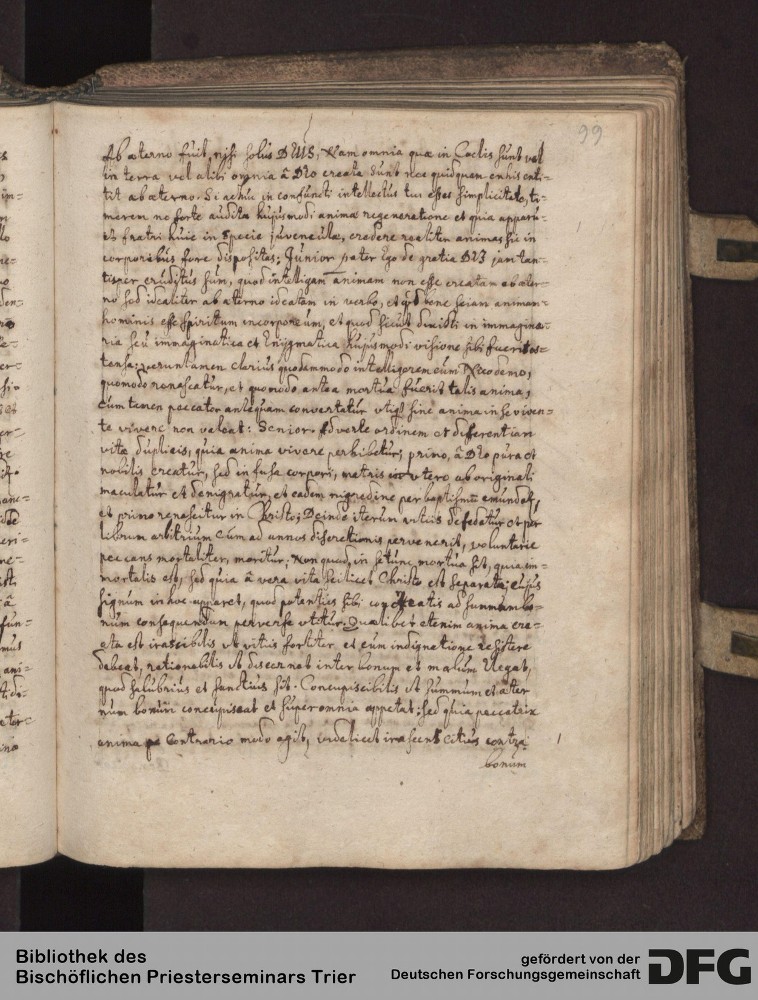 99
Ab æterno fuit, nisi solus DEUS, Nam omnia quæ in Coelis sunt vel
in terra vel alibi omnia â DEo creata sunt nec quidquam enhis exti-
tit ab æterno. Si achuc in confuncti intellectus tui esses simplicitate, ti-
merem ne forte audita hujusmodi animæ regeneratione et quia apparu-
et fratri huic in specie juvenculæ, credere realiter animas sic in
corporibus fore dispositas; Junior pater Ego de gratia DEI jam tan-
tisper eruditus sum, quod intelligam animam non esse creatam ab æter-
no sed idealiter ab æterno ideatam in verbo, et quod bene sciam animam
hominis esse spiritum incorporeum, et quod sicut dixisti in immagina-
ria seu immaginatica et Enygmatica hujusmodi visione sibi fuerit os-
tensa; veruntamen clarius quodammodo intelligerem cum Nicodemo,
quomodo renascatur, et quomodo antea mortua fuerit talis anima,
cum tamen peccator antequam convertatur utique sine anima in se viven-
te vivere non valeat: Senior. Adverte ordinem et differentiam
vitæ duplicis, quia anima vivere perhibetur, primo, â DEo pura et
nobilis creatur, sed infusa corpori, matris utero ab originali
maculatur et denigratur, et eadem nigredine per baptismum emundatur,
et primo renascitur in Christo; Deinde iterum vitiis defedatur et per
librum arbitrium cum ad annos discretionis pervenerit, voluntarie
peccans mortaliter, moritur; Non quod in se tunc mortua sit, quia im-
mortalis est, sed quia â vera vita scilicet Christo est separata; cujus
signum in hoc apparet, quod potentiis sibi concreatis ad summum bo-
num consequendum perverse utitur. Quælibet etenim anima cre-
ata est irascibilis ut vitiis fortiter et cum indignatione resistere
debeat, rationabilis ut discernat inter bonum et malum Elegat,
quod salubrius et sanctius sit. Concupiscibilis ut summum et æter
num bonum concupiscat et super omnia appetat; sed quia peccatrix
anima Contrario modo agit, videlicet irascens citius contra
bonum
Bibliothek des
Bischöflichen Priesterseminars Trier
gefördert von der
Deutschen Forschungsgemeinschaft
DFG